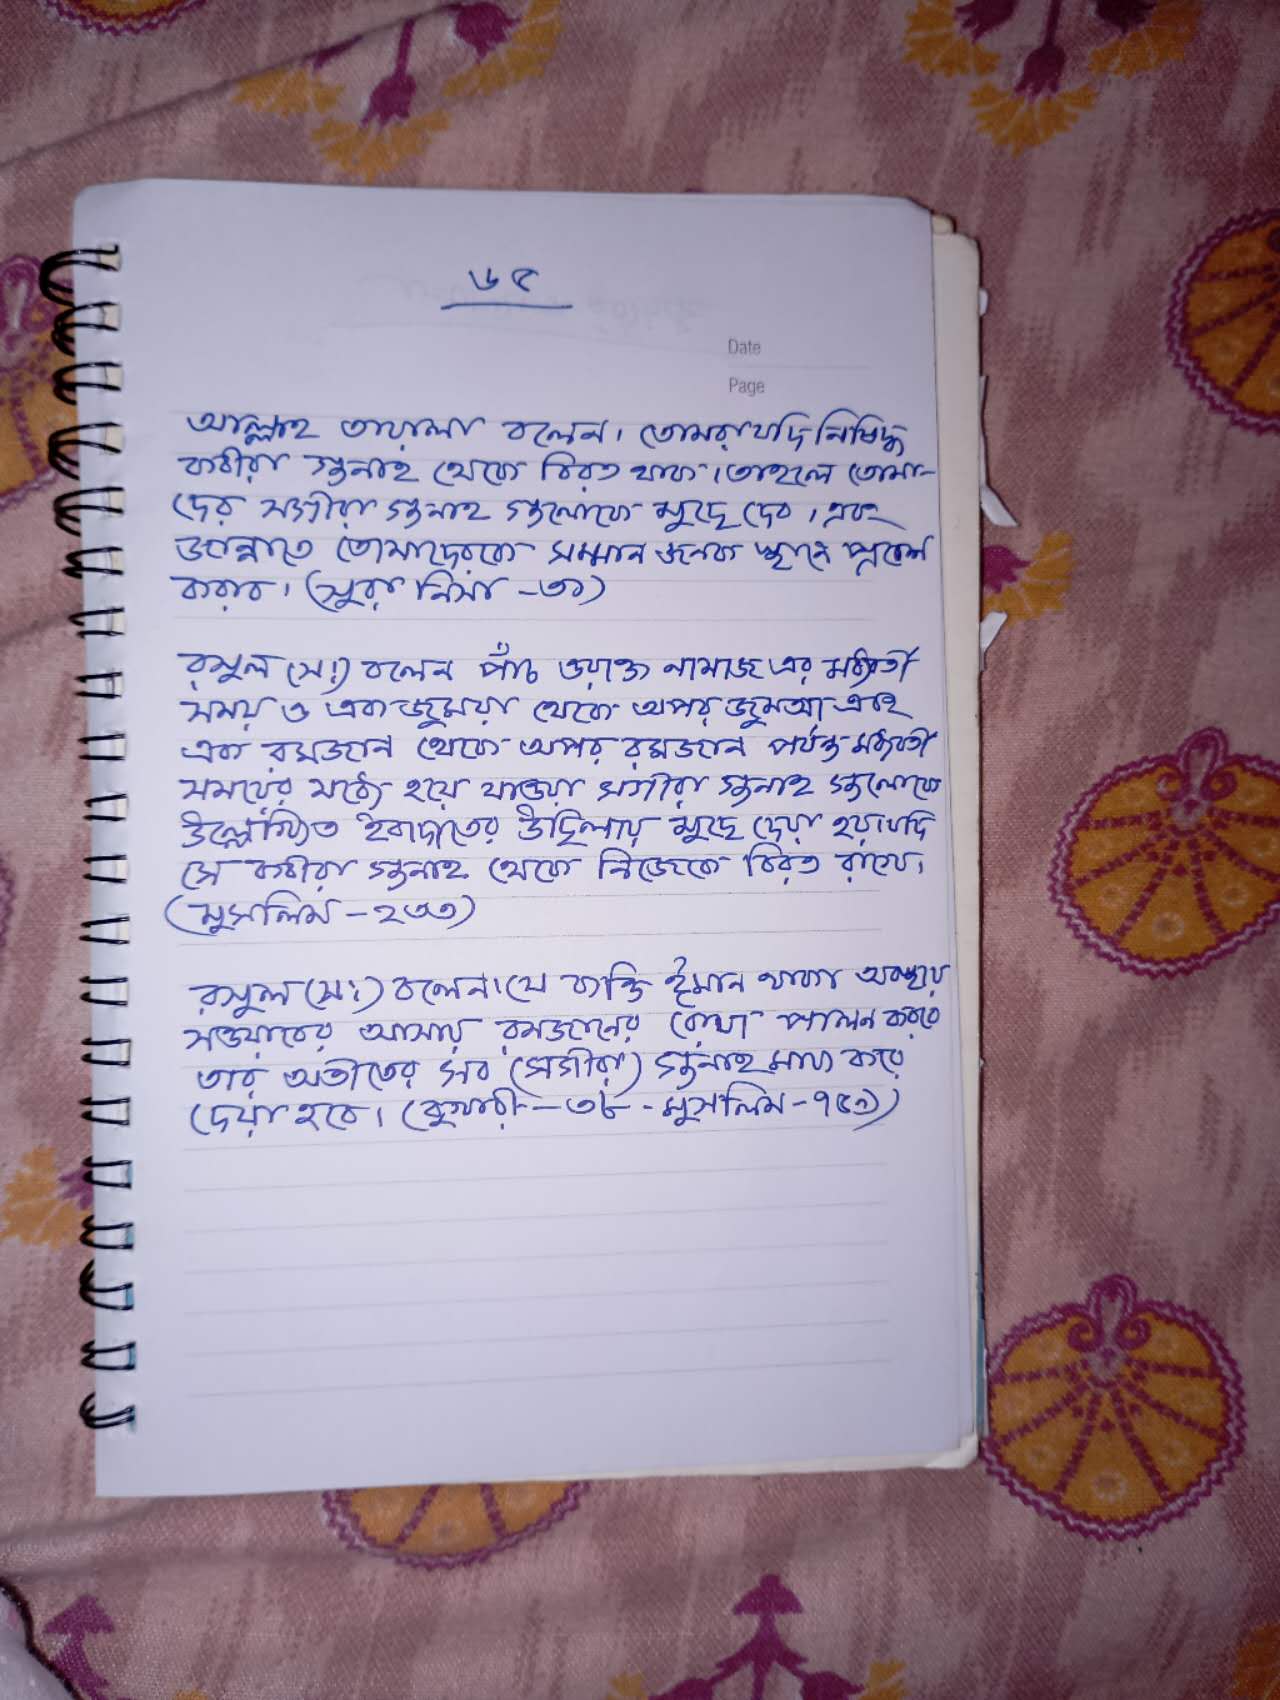 ৬৫
Date
Page
আল্লাহ তায়ালা বলেন। তোমরা যদি নিষিদ্ধ
কবীরা গুনাহ থেকে বিরত থাক। তাহলে তোমা-
দের সগীরা গুনাহ গুলোকে মুছে দেব। এবং
জান্নাতে তোমাদেরকে সম্মান জনক স্থানে প্রবেশ
করাব। (সুরা নিসা -৩১)
রসুল (স:) বলেন পাঁচ ওয়াক্ত নামাজ এর মধ্যবর্তী
সময় ও এক জুময়া থেকে অপর জুমআ এবং
এক রমজান থেকে অপর রমজান পর্যন্ত মধ্যবর্তী
সময়ের মধ্যে হয়ে যাওয়া সগীরা গুনাহ গুলোকে
উল্লেখিত ইবাদাতের উছিলায় মুছে দেয়া হয়। যদি
সে কবীরা গুনাহ থেকে নিজেকে বিরত রাখে।
(মুসলিম -২৩৩)
রসুল (স:) বলেন। যে ব্যক্তি ঈমান থাকা অবস্থায়
সওয়াবের আসায় রমজানের রোযা পালন করবে
তার অতীতের সব (সগীরা) গুনাহ মাফ করে
দেয়া হবে। (বুখারী -৩৮ - মুসলিম -৭৫৯)